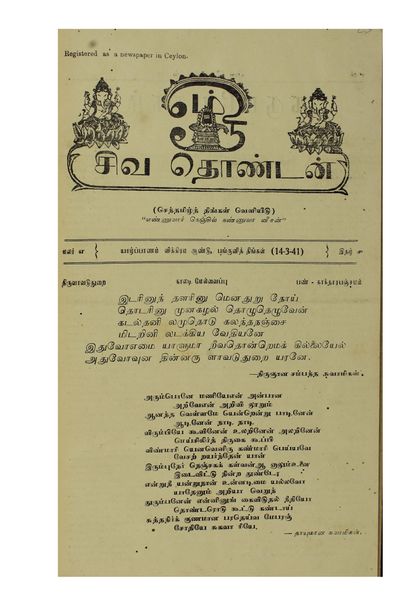 Registered as a newspaper in Ceylon.
சிவ தொண்டன்
(செந்தமிழ்த் திங்கள் வெளியீடு)
மலர் எ யாழ்ப்பாணம் விக்கிரம ஆண்டு, பங்குனித் திங்கள் (14-3-41) இதழ்
திருவாவடுதுறை நாலடி மேல்வைப்பு பண் - காந்தாரபஞ்சமம்
இடரினுந் தளரினு மெனதுறு நோய்
தொடரினு முனகழல் தொழுதெழுவேன்
கடல்தனி லமுதொடு கலந்தநஞ்சை
மிடறினி லடக்கிய வேதியனே
இதுவோஎமை யாளுமா றீவதொன்றெமக் கில்லையேல்
அதுவோவுன தின்னரு ளாவடுதுறை யரனே.
—திருஞான சம்பந்த சுவாமிகள்.
அரும்பொனே மணியேஎன் அன்பான
அறிவேஎன் அறிவி லூறும்
ஆனந்த வெள்ளமே யென்றென்று பாடினேன்
ஆடினேன் நாடி நாடி
விரும்பியே கூவினேன் உலறினேன் அலறினேன்
மெய்சிலிர்த் திருகை கூப்பி
விண்மாரி யெனவெனிரு கண்மாரி பெய்யவே
வேசற் றயர்ந்தேன் யான்
இரும்புநேர் நெஞ்சகக் கள்வன்ஆ னாலும்உனை
இடைவிட்டு நின்ற துண்டோ
என்றுநீ யன்றுநான் உன்னடிமை யல்லவோ
யாதேனும் அறியா வெறுந்
துரும்பனேன் என்னினுங் கைவிடுதல் நீதியோ
தொண்டரொடு கூட்டு கண்டாய்
சுத்தநிர்க் குணமான பரதெய்வ மேபரஞ்
சோதியே சுகவா ரியே.
—தாயுமான சுவாமிகள்.